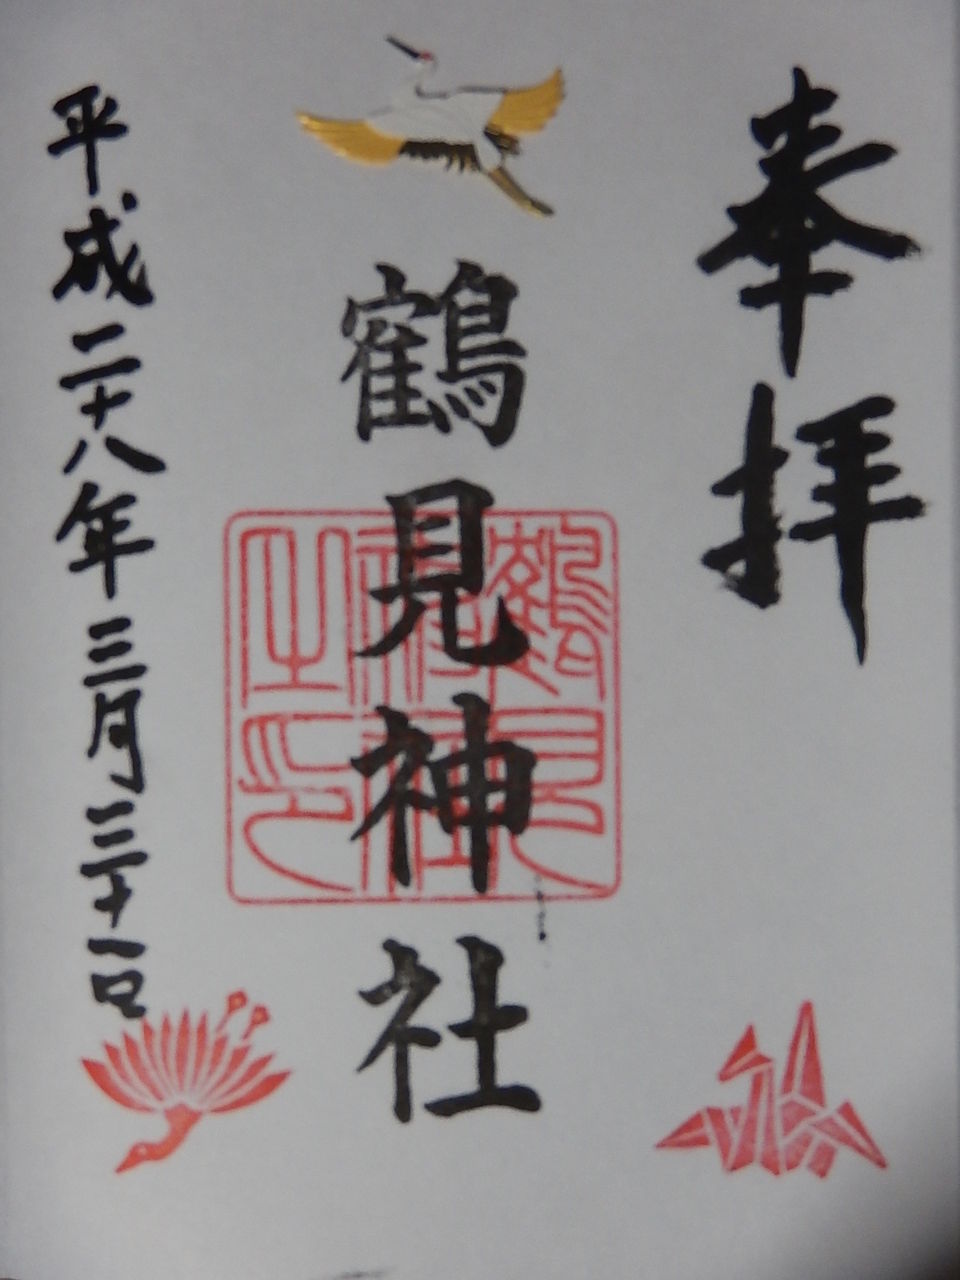 奉拝
鶴見神社
鶴見神社之印
平成二十八年三月三十一日